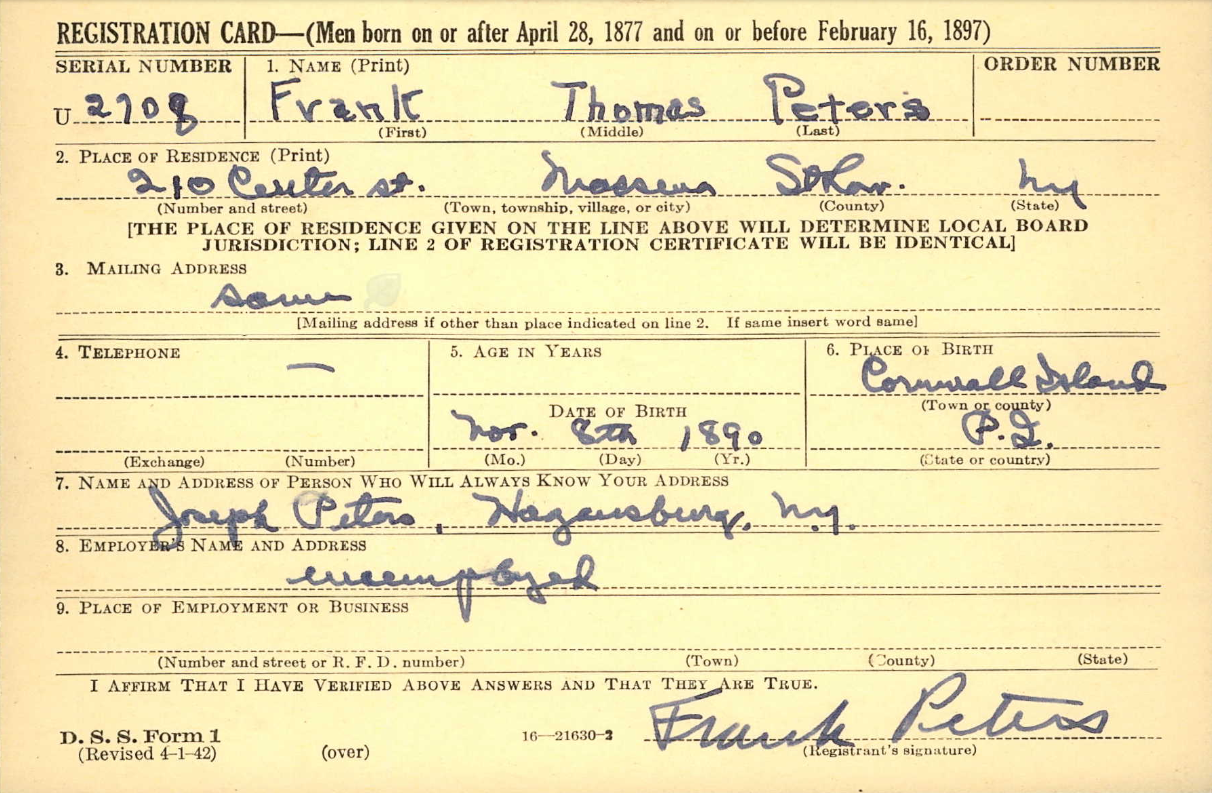 REGISTRATION CARD—(Men born on or after April 28, 1877 and on or before February 16, 1897)
SERIAL NUMBER 1. NAME (Print) ORDER NUMBER
U 2708 Frank Thomas Peters
(First) (Middle) (Last)
2. PLACE OF RESIDENCE (Print)
210 Center st. Massena St Law. Ny
(Number and street) (Town, township, village, or city) (County) (State)
[THE PLACE OF RESIDENCE GIVEN ON THE LINE ABOVE WILL DETERMINE LOCAL BOARD
JURISDICTION; LINE 2 OF REGISTRATION CERTIFICATE WILL BE IDENTICAL]
3. MAILING ADDRESS
same
[Mailing address if other than place indicated on line 2. If same insert word same]
4. TELEPHONE 5. AGE IN YEARS 6. PLACE OF BIRTH
— Cornwall Island
DATE OF BIRTH (Town or county)
Nov. 8th 1890 P.Q.
(Exchange) (Number) (Mo.) (Day) (Yr.) (State or country)
7. NAME AND ADDRESS OF PERSON WHO WILL ALWAYS KNOW YOUR ADDRESS
Joseph Peters, Hogansburg, N.y.
8. EMPLOYER'S NAME AND ADDRESS
unemployed
9. PLACE OF EMPLOYMENT OR BUSINESS
(Number and street or R. F. D. number) (Town) (County) (State)
I AFFIRM THAT I HAVE VERIFIED ABOVE ANSWERS AND THAT THEY ARE TRUE.
Frank Peters
D. S. S. Form 1
(Revised 4-1-42) (over) 16—21630-2 (Registrant's signature)